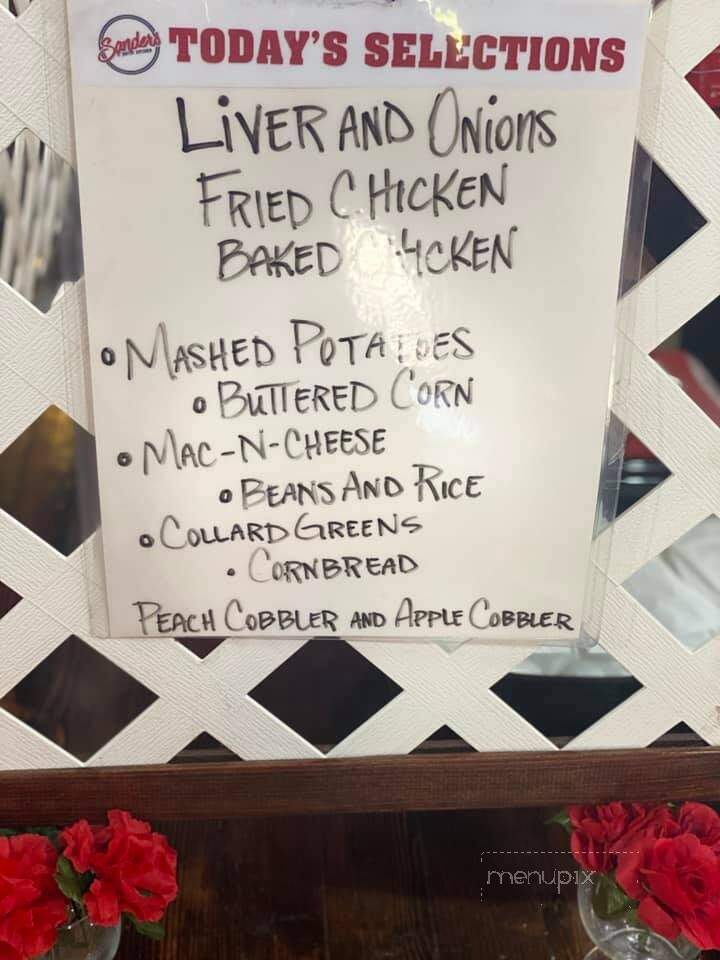 Sanders TODAY'S SELECTIONS
LIVER AND ONIONS
FRIED CHICKEN
BAKED CHICKEN
• MASHED POTATOES
• BUTTERED CORN
• MAC-N-CHEESE
• BEANS AND RICE
• COLLARD GREENS
• CORNBREAD
PEACH COBBLER AND APPLE COBBLER
menupix